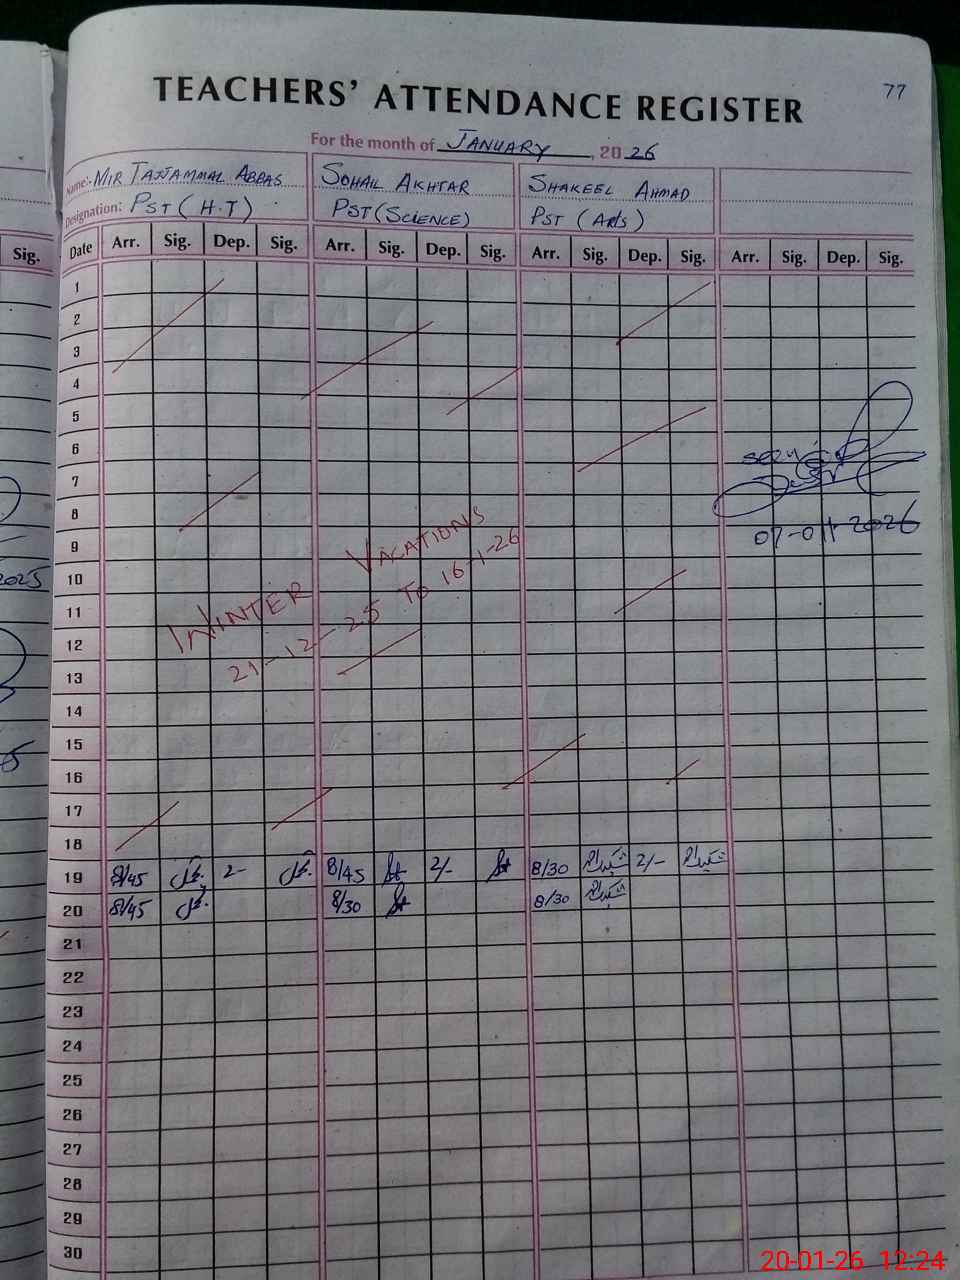 77
TEACHERS' ATTENDANCE REGISTER
For the month of JANUARY, 2026
Name:- MIR TAJJAMMAL ABBAS SOHAIL AKHTAR SHAKEEL AHMAD
Designation: PST (H.T) PST (SCIENCE) PST (Arts)
Sig.
Date Arr. Sig. Dep. Sig. Arr. Sig. Dep. Sig. Arr. Sig. Dep. Sig. Arr. Sig. Dep. Sig.
1
2
3
4
5
6
7
8
07-01-2026
9
10
2025
11
12
13
14
15
16
17
18
WINTER VACATIONS
21-12-25 TO 16-1-26
19 8/45 2- 8/45 2/- 8/30 2/-
20 8/45 8/30 8/30
21
22
23
24
25
26
27
28
29
30
20-01-26 12:24